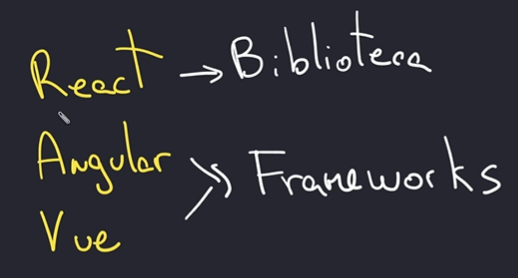 React → Biblioteca
Angular
Frameworks
Vue